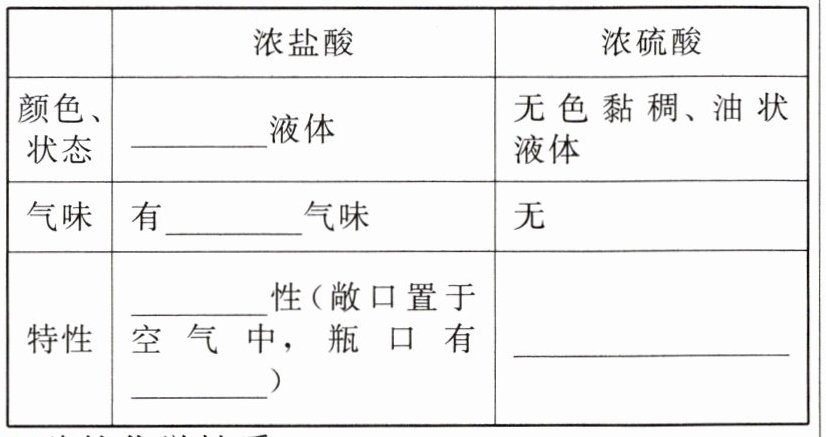 浓盐酸 浓硫酸
颜色、
状态
________液体
无色黏稠、油状
液体
气味 有________气味 无
特性
________性(敞口置于
空气中,瓶口有
________)
________________